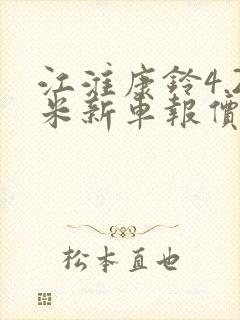 江淮康鈴4.2
米新車報價
松本直也